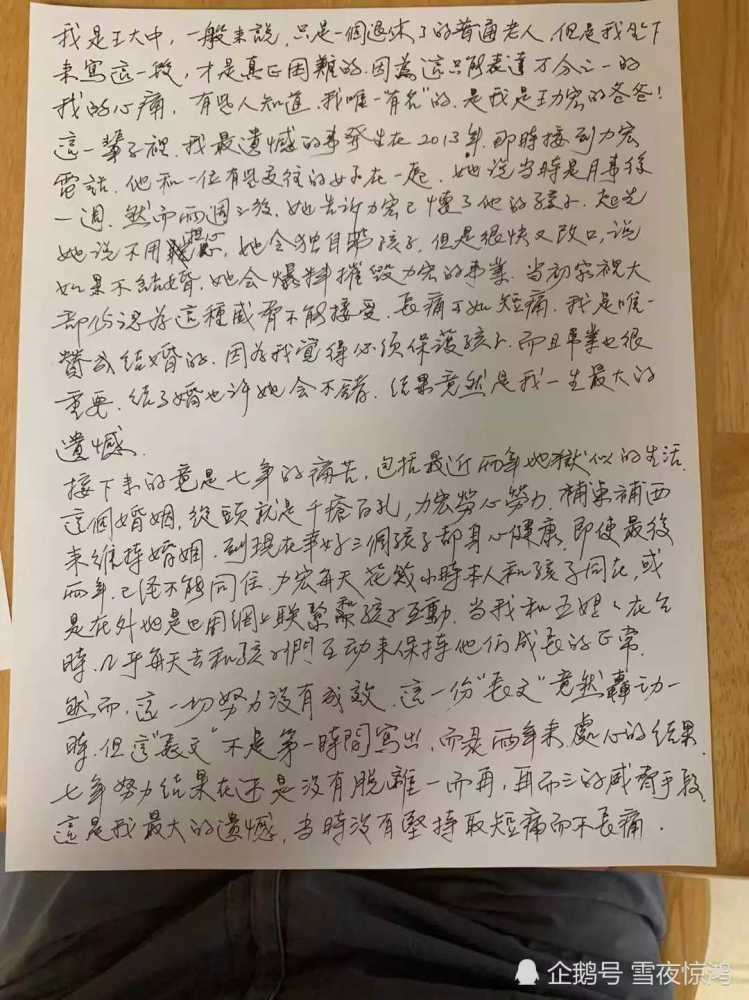 我是王大中，一般來說，只是一個退休了的普通老人，但是我坐下
來寫這一段，才是真正困難的．因為這只能表達万分之一的
我的心痛，有些人知道．我唯一"有名"的．是我是王力宏的爸爸！
這一輩子裡．我最遺憾的事発生在2013年．那時接到力宏
電話．他和一位有些交往的女子在一起．她說當時是月事後
一週．然而兩週之後．她告訴力宏已懷了他的孩子．起先
她說不用担心，她会獨自帶孩子．但是很快又改口，說
如果不結婚．她会爆料摧毀力宏的事業．當初家裡大
部份認為這種威脅不能接受．長痛不如短痛．我是唯一
贊成結婚的．因為我覺得必須保護孩子．而且事業也很
重要．結了婚也許她会不錯．結果竟然是我一生最大的
遺憾．
接下來的竟是七年的痛苦，包括最近兩年地獄似的生活．
這個婚姻，從頭就是千瘡百孔，力宏勞心勞力．補東補西
來維持婚姻．到現在幸好三個孩子都身心健康．即使最後
兩年．已經不能同住．力宏每天花幾小時本人和孩子同在，或
是在外地是也用網上聯繫跟孩子互動．當我和王媽媽在台
時．几乎每天去和孩子們互動來保持他们成長的正常．
然而．這一切努力沒有成效．這一份"長文"竟然轟动一
時．但這"長文"不是第一時間寫出，而是兩年來．處心的結果．
七年努力結果在还是沒有脫離一而再，再而三的威脅手段．
這是我最大的遺憾，當時沒有堅持取短痛而不長痛．
企鹅号 雪夜惊鸿